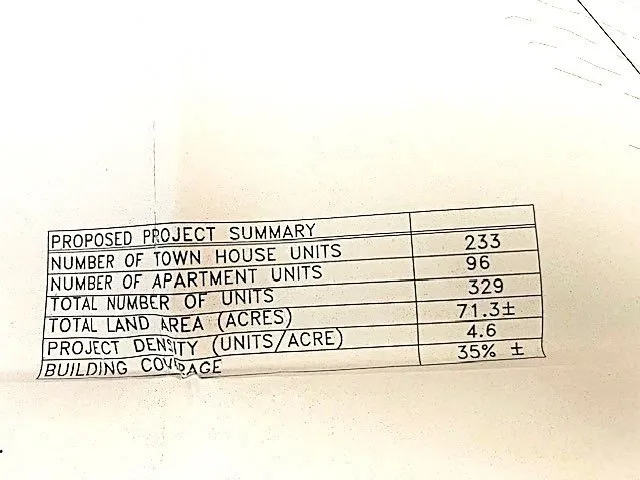 PROPOSED PROJECT SUMMARY
NUMBER OF TOWN HOUSE UNITS 233
NUMBER OF APARTMENT UNITS 96
TOTAL NUMBER OF UNITS 329
TOTAL LAND AREA (ACRES) 71.3±
PROJECT DENSITY (UNITS/ACRE) 4.6
BUILDING COVERAGE 35% ±